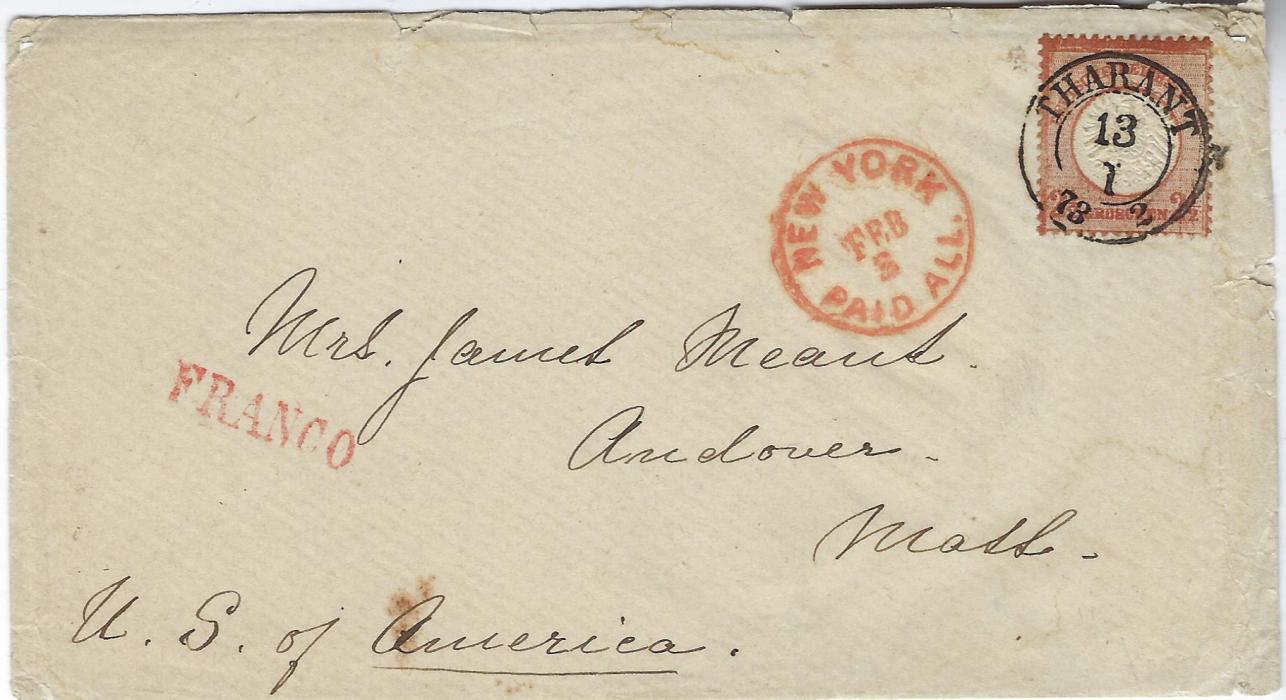 THARANT
13
I
73 2
NEW YORK
FEB
PAID ALL
Mrs. James Means.
Andover.
FRANCO
Mass.
U. S. of America.